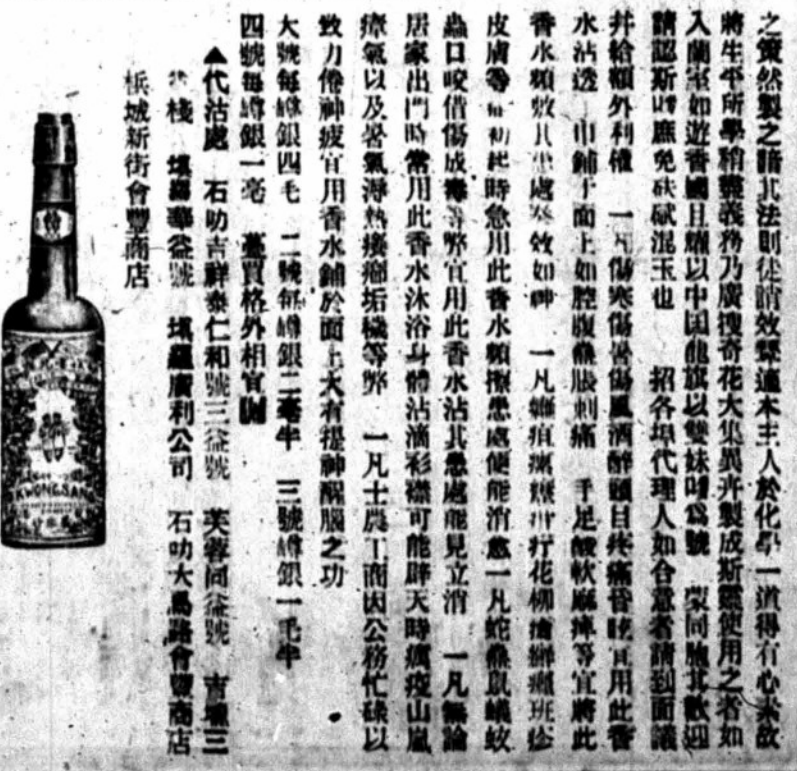 之策然製之諳其法則徒請效顰適本主人於化學一道得有心素故
將生平所學稍盡義務乃廣搜奇花大集異卉製成斯靈使用之者如
入蘭室如遊香國且耀以中国龍旗以雙妹嘜爲號 蒙同胞共歡迎
請認斯嘜庶免砆碔混玉也 招各埠代理人如合意者請到面議
并給額外利權 一凡傷寒傷暑傷風酒醉頭目疼痛昏眩宜用此香
水沾透 巾鋪于面上如腔腹飽脹刺痛 手足酸軟麻痺等宜將此
香水頻敷其患處 效如神 一凡 疽 花柳 癬 班疹
皮膚等 初起時急用此香水頻擦患處便能消愈一凡蛇 鼠蟻蚊
蟲口咬借傷成毒等弊宜用此香水沾其患處能見立消 一凡無論
居家出門時常用此香水沐浴身體沾滴衫襟可能辟天時瘋疫山嵐
瘴氣以及暑氣溽熱 垢穢等弊 一凡士農工商因公務忙碌以
致力倦神疲宜用香水鋪於面上大有提神醒腦之功
大號每罇銀四毛 二號每罇銀二毫半 三號罇銀一毛半
四號每罇銀一毫 躉買格外相宜
▲代沽處 石叻吉祥泰仁和號三益號 芙蓉同益號 吉壠三
棧 壩羅華益號 壩羅廣利公司 石叻大馬路會豐商店
梹城新街會豐商店
KWONGSANG